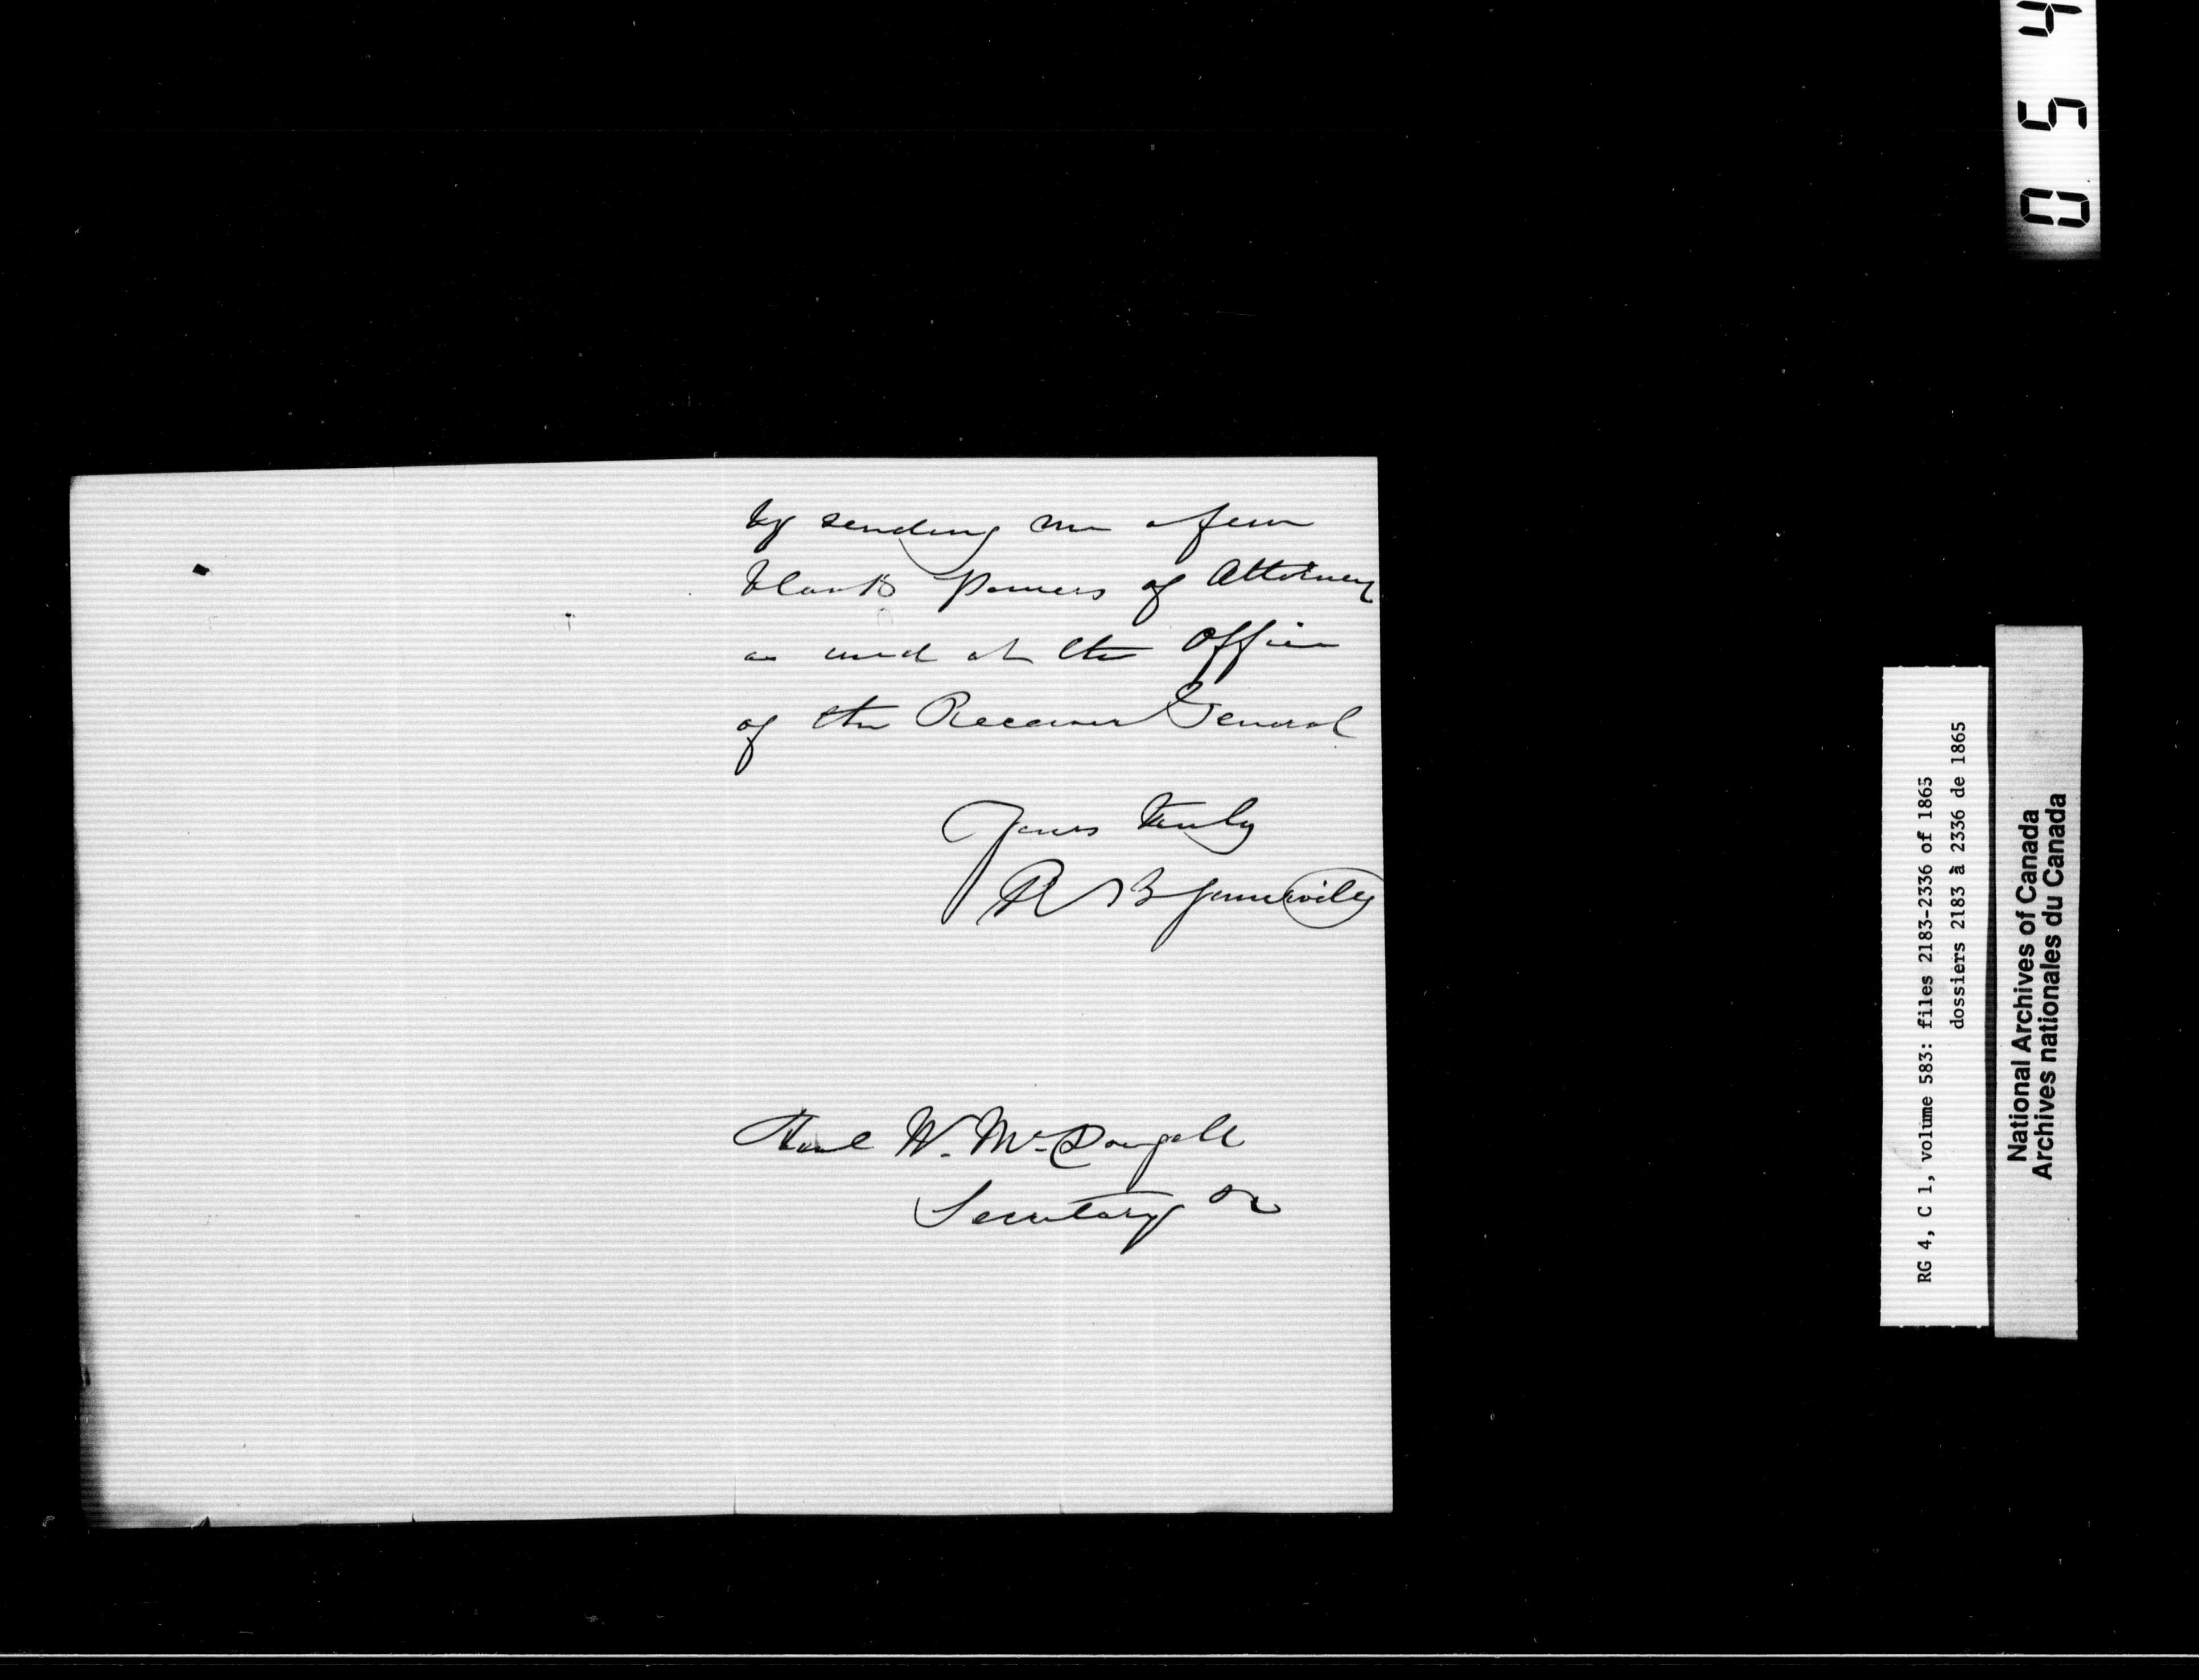 by sending me a few
blank Powers of Attorney
as used at the Office
of the Receiver General
Yours truly
R B Somerville
Honl W. McDougall
Secretary &c
0 5 4
RG 4, C 1, volume 583: files 2183-2336 of 1865
dossiers 2183 à 2336 de 1865
National Archives of Canada
Archives nationales du Canada